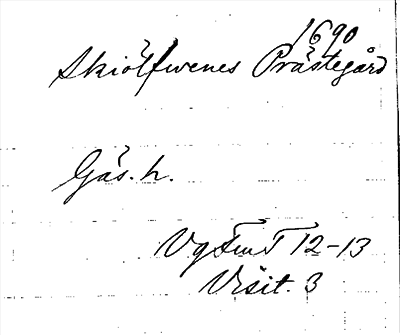 1690
Skiölfwenes Prästegård
Gäs. h.
Vg Fm T 12-13
Visit. 3